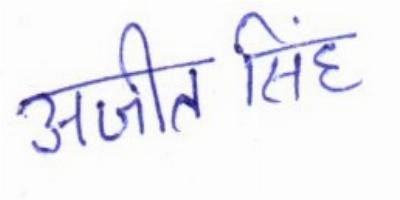 अजीत सिंह